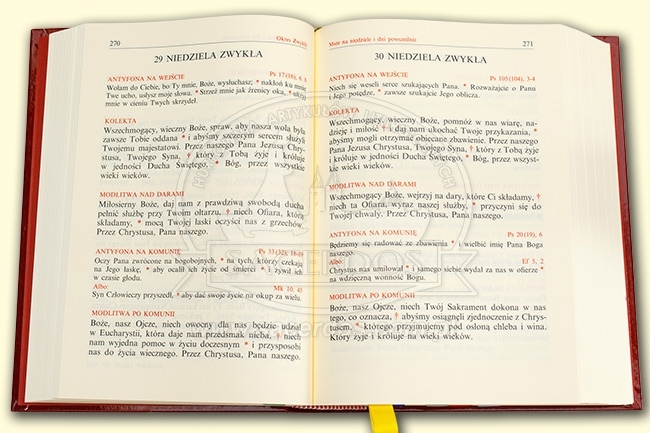 270 Okres Zwykły
29 NIEDZIELA ZWYKŁA
ANTYFONA NA WEJŚCIE Ps 17(16), 6. 8
Wołam do Ciebie, bo Ty mnie, Boże, wysłuchasz; * nakłoń ku mnie
Twe ucho, usłysz moje słowa. * Strzeż mnie jak źrenicy oka, * ukryj
mnie w cieniu Twych skrzydeł.
KOLEKTA
Wszechmogący, wieczny Boże, spraw, aby nasza wola była
zawsze Tobie oddana * i abyśmy szczerym sercem służyli
Twojemu majestatowi. Przez naszego Pana Jezusa Chry-
stusa, Twojego Syna, † który z Tobą żyje i króluje
w jedności Ducha Świętego, * Bóg, przez wszystkie
wieki wieków.
MODLITWA NAD DARAMI
Miłosierny Boże, daj nam z prawdziwą swobodą ducha
pełnić służbę przy Twoim ołtarzu, † niech Ofiara, którą
składamy, * mocą Twojej łaski oczyści nas z grzechów.
Przez Chrystusa, Pana naszego.
ANTYFONA NA KOMUNIĘ Ps 33(32), 18-19
Oczy Pana zwrócone na bogobojnych, * na tych, którzy czekają
na Jego łaskę, * aby ocalił ich życie od śmierci * i żywił ich
w czasie głodu.
Albo: Mk 10, 45
Syn Człowieczy przyszedł, * aby dać swoje życie na okup za wielu.
MODLITWA PO KOMUNII
Boże, nasz Ojcze, niech owocny dla nas będzie udział
w Eucharystii, która daje nam przedsmak nieba, † niech
nam wyjedna pomoc w życiu doczesnym * i przysposobi
nas do życia wiecznego. Przez Chrystusa, Pana naszego.
Msze na niedziele i dni powszednie 271
30 NIEDZIELA ZWYKŁA
ANTYFONA NA WEJŚCIE Ps 105(104), 3-4
Niech się weseli serce szukających Pana. * Rozważajcie o Panu
i Jego potędze, * zawsze szukajcie Jego oblicza.
KOLEKTA
Wszechmogący, wieczny Boże, pomnóż w nas wiarę, na-
dzieję i miłość † i daj nam ukochać Twoje przykazania, *
abyśmy mogli otrzymać obiecane zbawienie. Przez naszego
Pana Jezusa Chrystusa, Twojego Syna, † który z Tobą żyje
i króluje w jedności Ducha Świętego, * Bóg, przez wszyst-
kie wieki wieków.
MODLITWA NAD DARAMI
Wszechmogący Boże, wejrzyj na dary, które Ci składamy, †
niech ta Ofiara, wyraz naszej służby, * przyczyni się do
Twojej chwały. Przez Chrystusa, Pana naszego.
ANTYFONA NA KOMUNIĘ Ps 20(19), 6
Będziemy się radować ze zbawienia * i wielbić imię Pana Boga
naszego.
Albo: Ef 5, 2
Chrystus nas umiłował * i samego siebie wydał za nas w ofierze *
na wdzięczną wonność Bogu.
MODLITWA PO KOMUNII
Boże, nasz Ojcze, niech Twój Sakrament dokona w nas
tego, co oznacza, † abyśmy osiągnęli zjednoczenie z Chry-
stusem, * którego przyjmujemy pod osłoną chleba i wina.
Który żyje i króluje na wieki wieków.